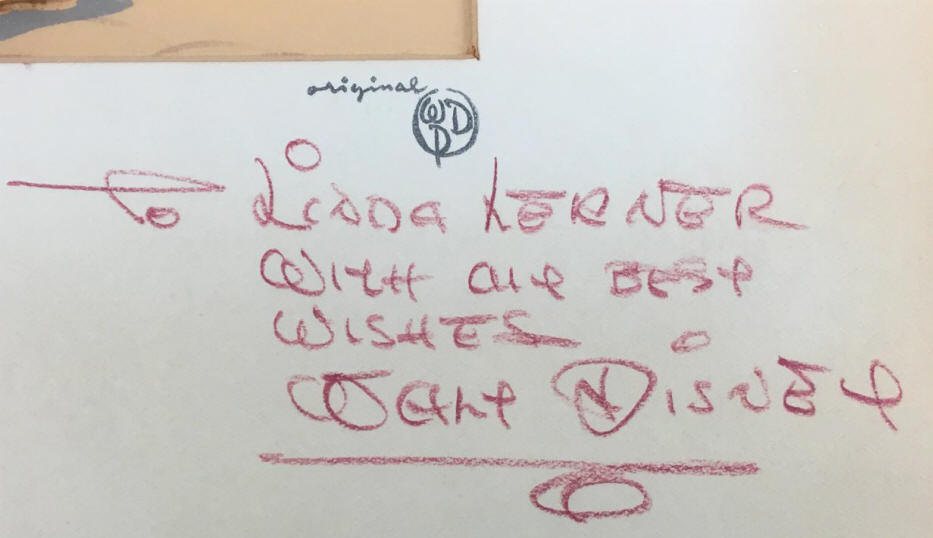 original
WDP
To LINDA LERNER
WITH BEST
WISHES
WALT DISNEY